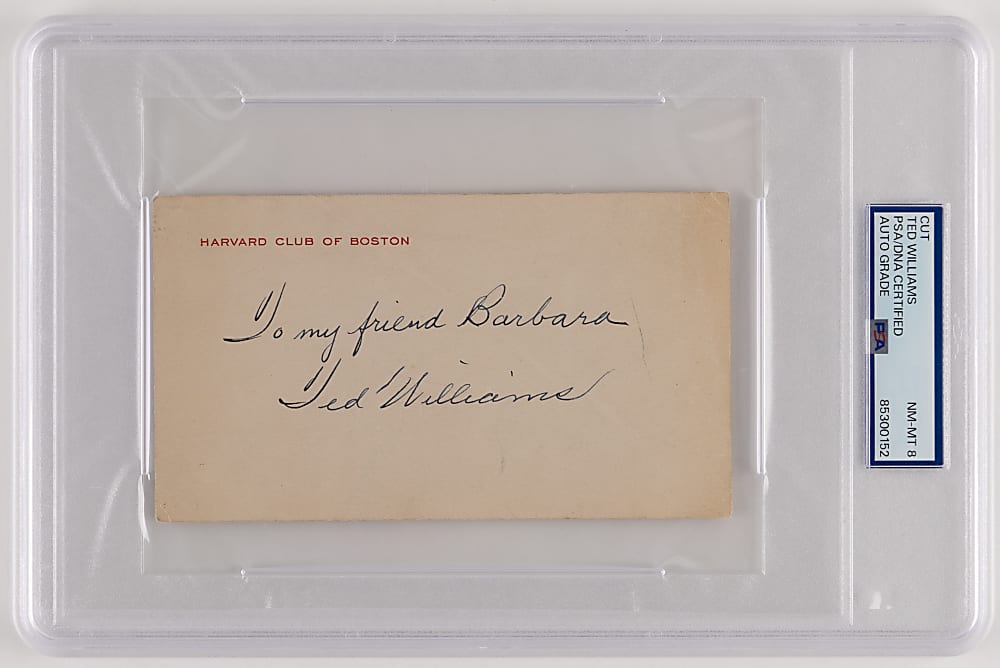 HARVARD CLUB OF BOSTON
To my friend Barbara
Ted Williams
CUT
TED WILLIAMS
PSA/DNA CERTIFIED NM-MT 8
AUTO GRADE 85300152
PSA